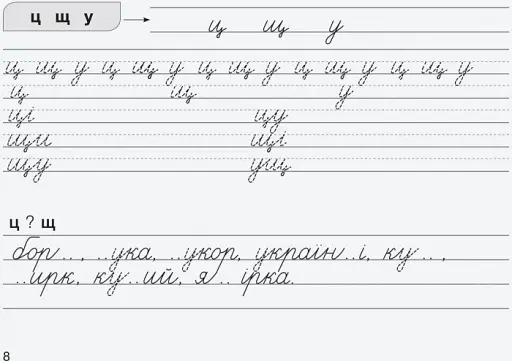 ц щ у ц щ у
ц щ у ц щ у ц щ у ц щ у ц щ у
ц щ у
ці цу
щи щі
щу ущ
ц ? щ
бор.., ..ука, ..укор, україн..і, ку..,
..ирк, ку..ий, я..ірка.
8